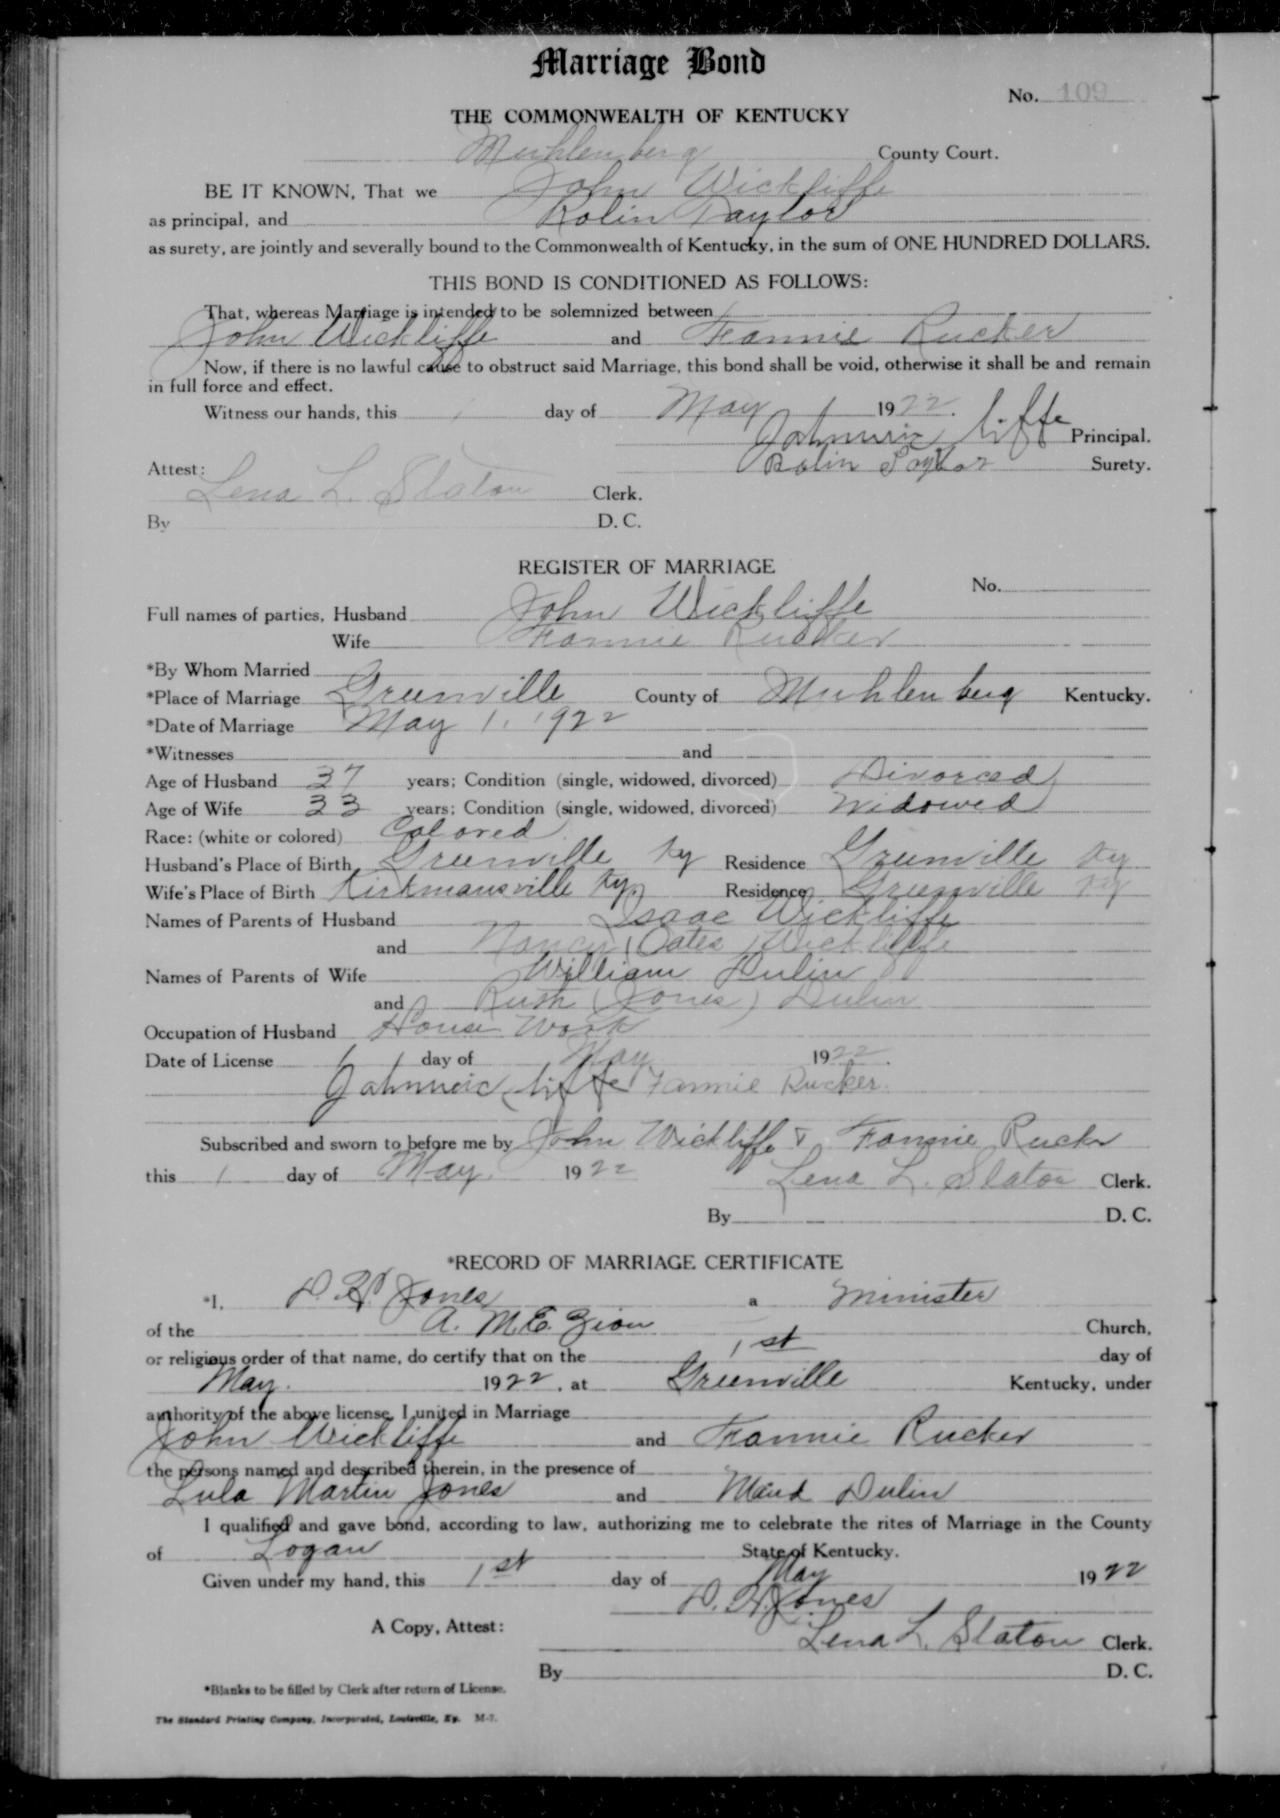 Marriage Bond
No. 109
THE COMMONWEALTH OF KENTUCKY
Muhlenberg County Court.
BE IT KNOWN, That we John Wickliffe
as principal, and Rolin Taylor
as surety, are jointly and severally bound to the Commonwealth of Kentucky, in the sum of ONE HUNDRED DOLLARS.
THIS BOND IS CONDITIONED AS FOLLOWS:
That, whereas Marriage is intended to be solemnized between
John Wickliffe and Fannie Rucker
Now, if there is no lawful cause to obstruct said Marriage, this bond shall be void, otherwise it shall be and remain
in full force and effect.
Witness our hands, this 1 day of May 1922.
Principal.
Rolin Taylor Surety.
Attest:
Lena L. Slaton Clerk.
By D. C.
REGISTER OF MARRIAGE
No.
Full names of parties, Husband John Wickliffe
Wife Fannie Rucker
*By Whom Married
*Place of Marriage Greenville County of Muhlenberg Kentucky.
*Date of Marriage May 1, 1922
*Witnesses and
Age of Husband 37 years; Condition (single, widowed, divorced) Divorced
Age of Wife 33 years; Condition (single, widowed, divorced) Widowed
Race: (white or colored) Colored
Husband's Place of Birth Greenville Ky Residence Greenville Ky
Wife's Place of Birth Kirkmansville Ky. Residence Greenville Ky
Names of Parents of Husband Isaac Wickliffe
and Nancy (Oates) Wickliffe
Names of Parents of Wife William Dulin
and Ruth (Jones) Dulin
Occupation of Husband House Work
Date of License 1 day of May 1922.
Fannie Rucker.
Subscribed and sworn to before me by John Wickliffe & Fannie Rucker
this 1 day of May. 1922
Lena L. Slaton Clerk.
By D. C.
*RECORD OF MARRIAGE CERTIFICATE
*I, D. H. Jones a Minister
of the A. M. E. Zion Church,
or religious order of that name, do certify that on the 1st day of
May. 1922, at Greenville Kentucky, under
authority of the above license, I united in Marriage
John Wickliffe and Fannie Rucker
the persons named and described therein, in the presence of
Lula Martin Jones and Maud Dulin
I qualified and gave bond, according to law, authorizing me to celebrate the rites of Marriage in the County
of Logan State of Kentucky.
Given under my hand, this 1st day of May 1922
D. H. Jones
A Copy, Attest:
Lena L. Slaton Clerk.
By D. C.
*Blanks to be filled by Clerk after return of License.
The Standard Printing Company, Incorporated, Louisville, Ky. M-7.